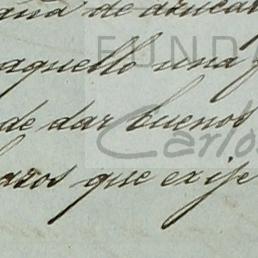 de azucar
aquello una
de dar buenos
que exije
FUNDA
Carlos